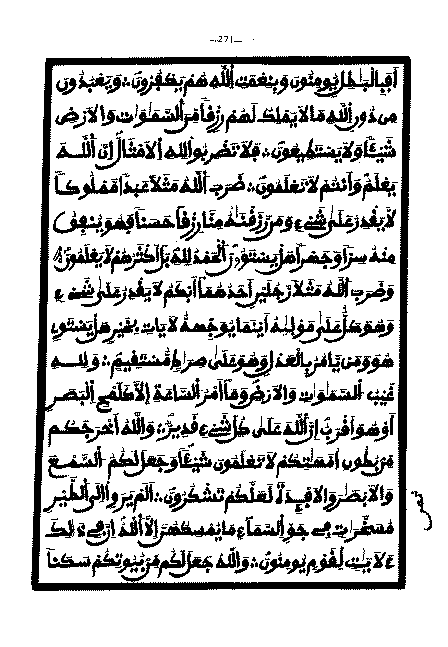 —271—
أَفَبِالْبَٰطِلِ يُومِنُونَ وَبِنِعْمَتِ اللَّهِ هُمْ يَكْفُرُونَ ∴ وَيَعْبُدُونَ
مِن دُونِ اللَّهِ مَا لَا يَمْلِكُ لَهُمْ رِزْقًا مِّنَ السَّمَٰوَٰتِ وَالَارْضِ
شَيْـًٔا وَلَا يَسْتَطِيعُونَ ∴ فَلَا تَضْرِبُوا لِلهِ الَامْثَالَ إِنَّ اللَّهَ
يَعْلَمُ وَأَنتُمْ لَا تَعْلَمُونَ ∴ ضَرَبَ اللَّهُ مَثَلًا عَبْدًا مَّمْلُوكًا
لَّا يَقْدِرُ عَلَىٰ شَيْءٍ وَمَن رَّزَقْنَٰهُ مِنَّا رِزْقًا حَسَنًا فَهُوَ يُنفِقُ
مِنْهُ سِرًّا وَجَهْرًا هَلْ يَسْتَوُونَ الْحَمْدُ لِلهِ بَلْ أَكْثَرُهُمْ لَا يَعْلَمُونَ ∴
وَضَرَبَ اللَّهُ مَثَلًا رَّجُلَيْنِ أَحَدُهُمَا أَبْكَمُ لَا يَقْدِرُ عَلَىٰ شَيْءٍ
وَهُوَ كَلٌّ عَلَىٰ مَوْلِيٰهُ أَيْنَمَا يُوَجِّههُّ لَا يَاتِ بِخَيْرٍ هَلْ يَسْتَوِي
هُوَ وَمَن يَّامُرُ بِالْعَدْلِ وَهُوَ عَلَىٰ صِرَٰطٍ مُّسْتَقِيمٍ ∴ وَلِلهِ
غَيْبُ السَّمَٰوَٰتِ وَالَارْضِ وَمَا أَمْرُ السَّاعَةِ إِلَّا كَلَمْحِ الْبَصَرِ
أَوْ هُوَ أَقْرَبُ إِنَّ اللَّهَ عَلَىٰ كُلِّ شَيْءٍ قَدِيرٌ ∴ وَاللَّهُ أَخْرَجَكُم
مِّن بُطُونِ أُمَّهَٰتِكُمْ لَا تَعْلَمُونَ شَيْـًٔا وَجَعَلَ لَكُمُ السَّمْعَ
وَالَابْصَٰرَ وَالَافْـِٕدَةَ لَعَلَّكُمْ تَشْكُرُونَ ∴ أَلَمْ يَرَوِا اِلَى الطَّيْرِ
مُسَخَّرَٰتٍ فِي جَوِّ السَّمَاءِ مَا يُمْسِكُهُنَّ إِلَّا اللَّهُ إِنَّ فِي ذَٰلِكَ
ءَلَايَٰتٍ لِّقَوْمٍ يُومِنُونَ ∴ وَاللَّهُ جَعَلَ لَكُم مِّن بُيُوتِكُمْ سَكَنًا
ثمن